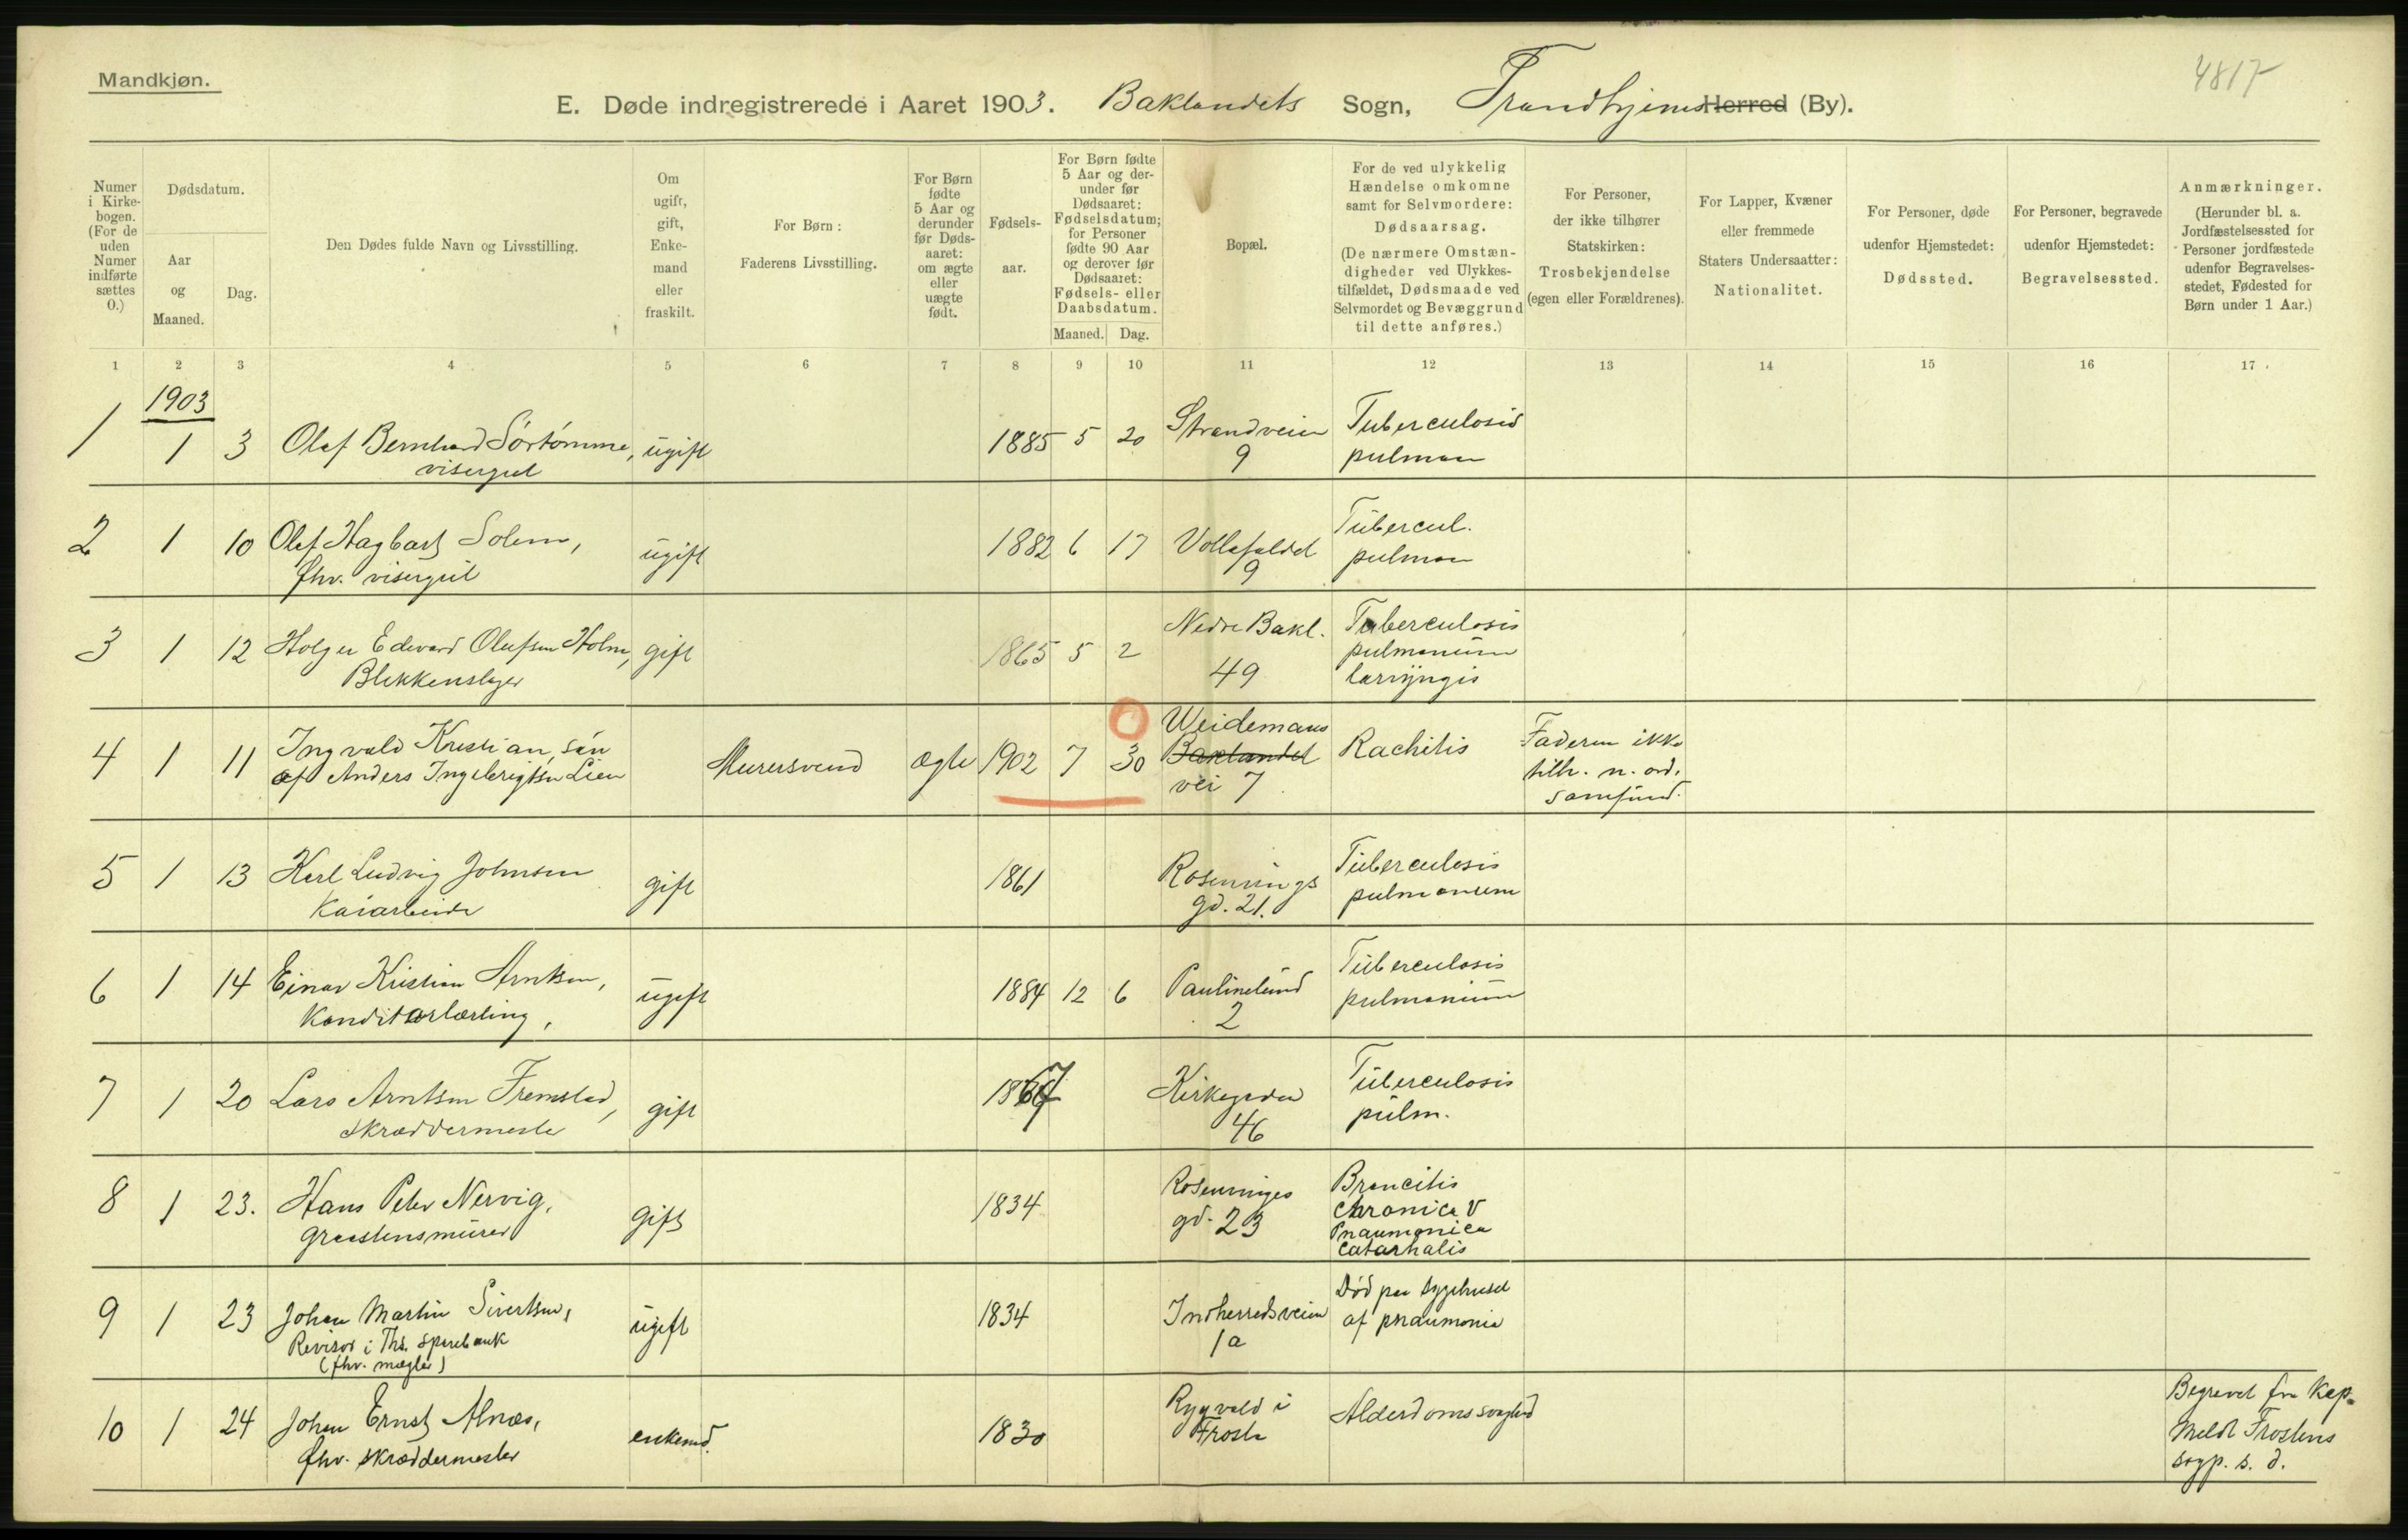 Mandkjøn.
4817
E. Døde indregistrerede i Aaret 1903. Baklandets Sogn, Trondhjems Herred (By).
Numer i Kirkebogen. (For de uden Numer indførte sættes 0.)
Dødsdatum.
Aar og Maaned.
Dag.
Den Dødes fulde Navn og Livsstilling.
Om ugift, gift, Enkemand eller fraskilt.
For Børn: Faderens Livsstilling.
For Børn fødte 5 Aar og derunder før Dødsaaret: om ægte eller uægte født.
Fødselsaar.
For Børn fødte 5 Aar og derunder før Dødsaaret: Fødselsdatum; for Personer fødte 90 Aar og derover før Dødsaaret: Fødsels- eller Daabsdatum.
Maaned. Dag.
Bopæl.
For de ved ulykkelig Hændelse omkomne samt for Selvmordere: Dødsaarsag. (De nærmere Omstændigheder ved Ulykkestilfældet, Dødsmaade ved Selvmordet og Bevæggrund til dette anføres.)
For Personer, der ikke tilhører Statskirken: Trosbekjendelse (egen eller Forældrenes).
For Lapper, Kvæner eller fremmede Staters Undersaatter: Nationalitet.
For Personer, døde udenfor Hjemstedet: Dødssted.
For Personer, begravede udenfor Hjemstedet: Begravelsessted.
Anmærkninger. (Herunder bl. a. Jordfæstelsessted for Personer jordfæstede udenfor Begravelsesstedet, Fødested for Børn under 1 Aar.)
1 2 3 4 5 6 7 8 9 10 11 12 13 14 15 16 17
1903
1 1 3 Olaf Bernhard Sörtömme, ugift 1885 5 20 Strandveien Tuberculosis
visergut 9 pulmon
2 1 10 Olaf Hagbart Solem, ugift 1882 6 17 Vollafaldet Tubercul.
fhv. visergut 9 pulmon
3 1 12 Holger Edevard Olufsen Holm, gift 1865 5 2 Nedre Bakl. Tuberculosis
Blikkenslager 49 pulmonum
larryngis
4 1 11 Ingvald Kristian, sön Murersvend ægte 1902 7 30 Weidemans Baklandet Rachitis Faderen ikke
af Anders Ingebrigtsen Lien vei 7 tilh. n. ord.
samfund.
5 1 13 Karl Ludvig Johnsen gift 1861 Rosenborgs Tuberculosis
Kaiarbeider gd. 21. pulmonum
6 1 14 Einar Kristian Arntsen, ugift 1884 12 6 Paulinelund Tuberculosis
Konditorlærling, 2 pulmonum
7 1 20 Lars Arntsen Fremstad, gift 1867 Kirkegaden Tuberculosis
skræddermester 46 pulm.
8 1 23. Hans Peter Nervig, gift 1834 Broncitis
graastensmurer gd. 23 chronica
Pnaumonica
catarhalis
9 1 23 Johan Martin Sivertsen, ugift 1834 Indherredsveien Död paa Sygehuset
Revisor i Ths. Sparebank 1a af pnaumonia
(fhv. mægler)
10 1 24 Johan Ernst Alnæs, enkemd. 1830 Rygvold i Alderdomssvaghed Begravet fra Kap.
fhv. skræddermester Frosta Meldt Frostens
sogp. s. d.